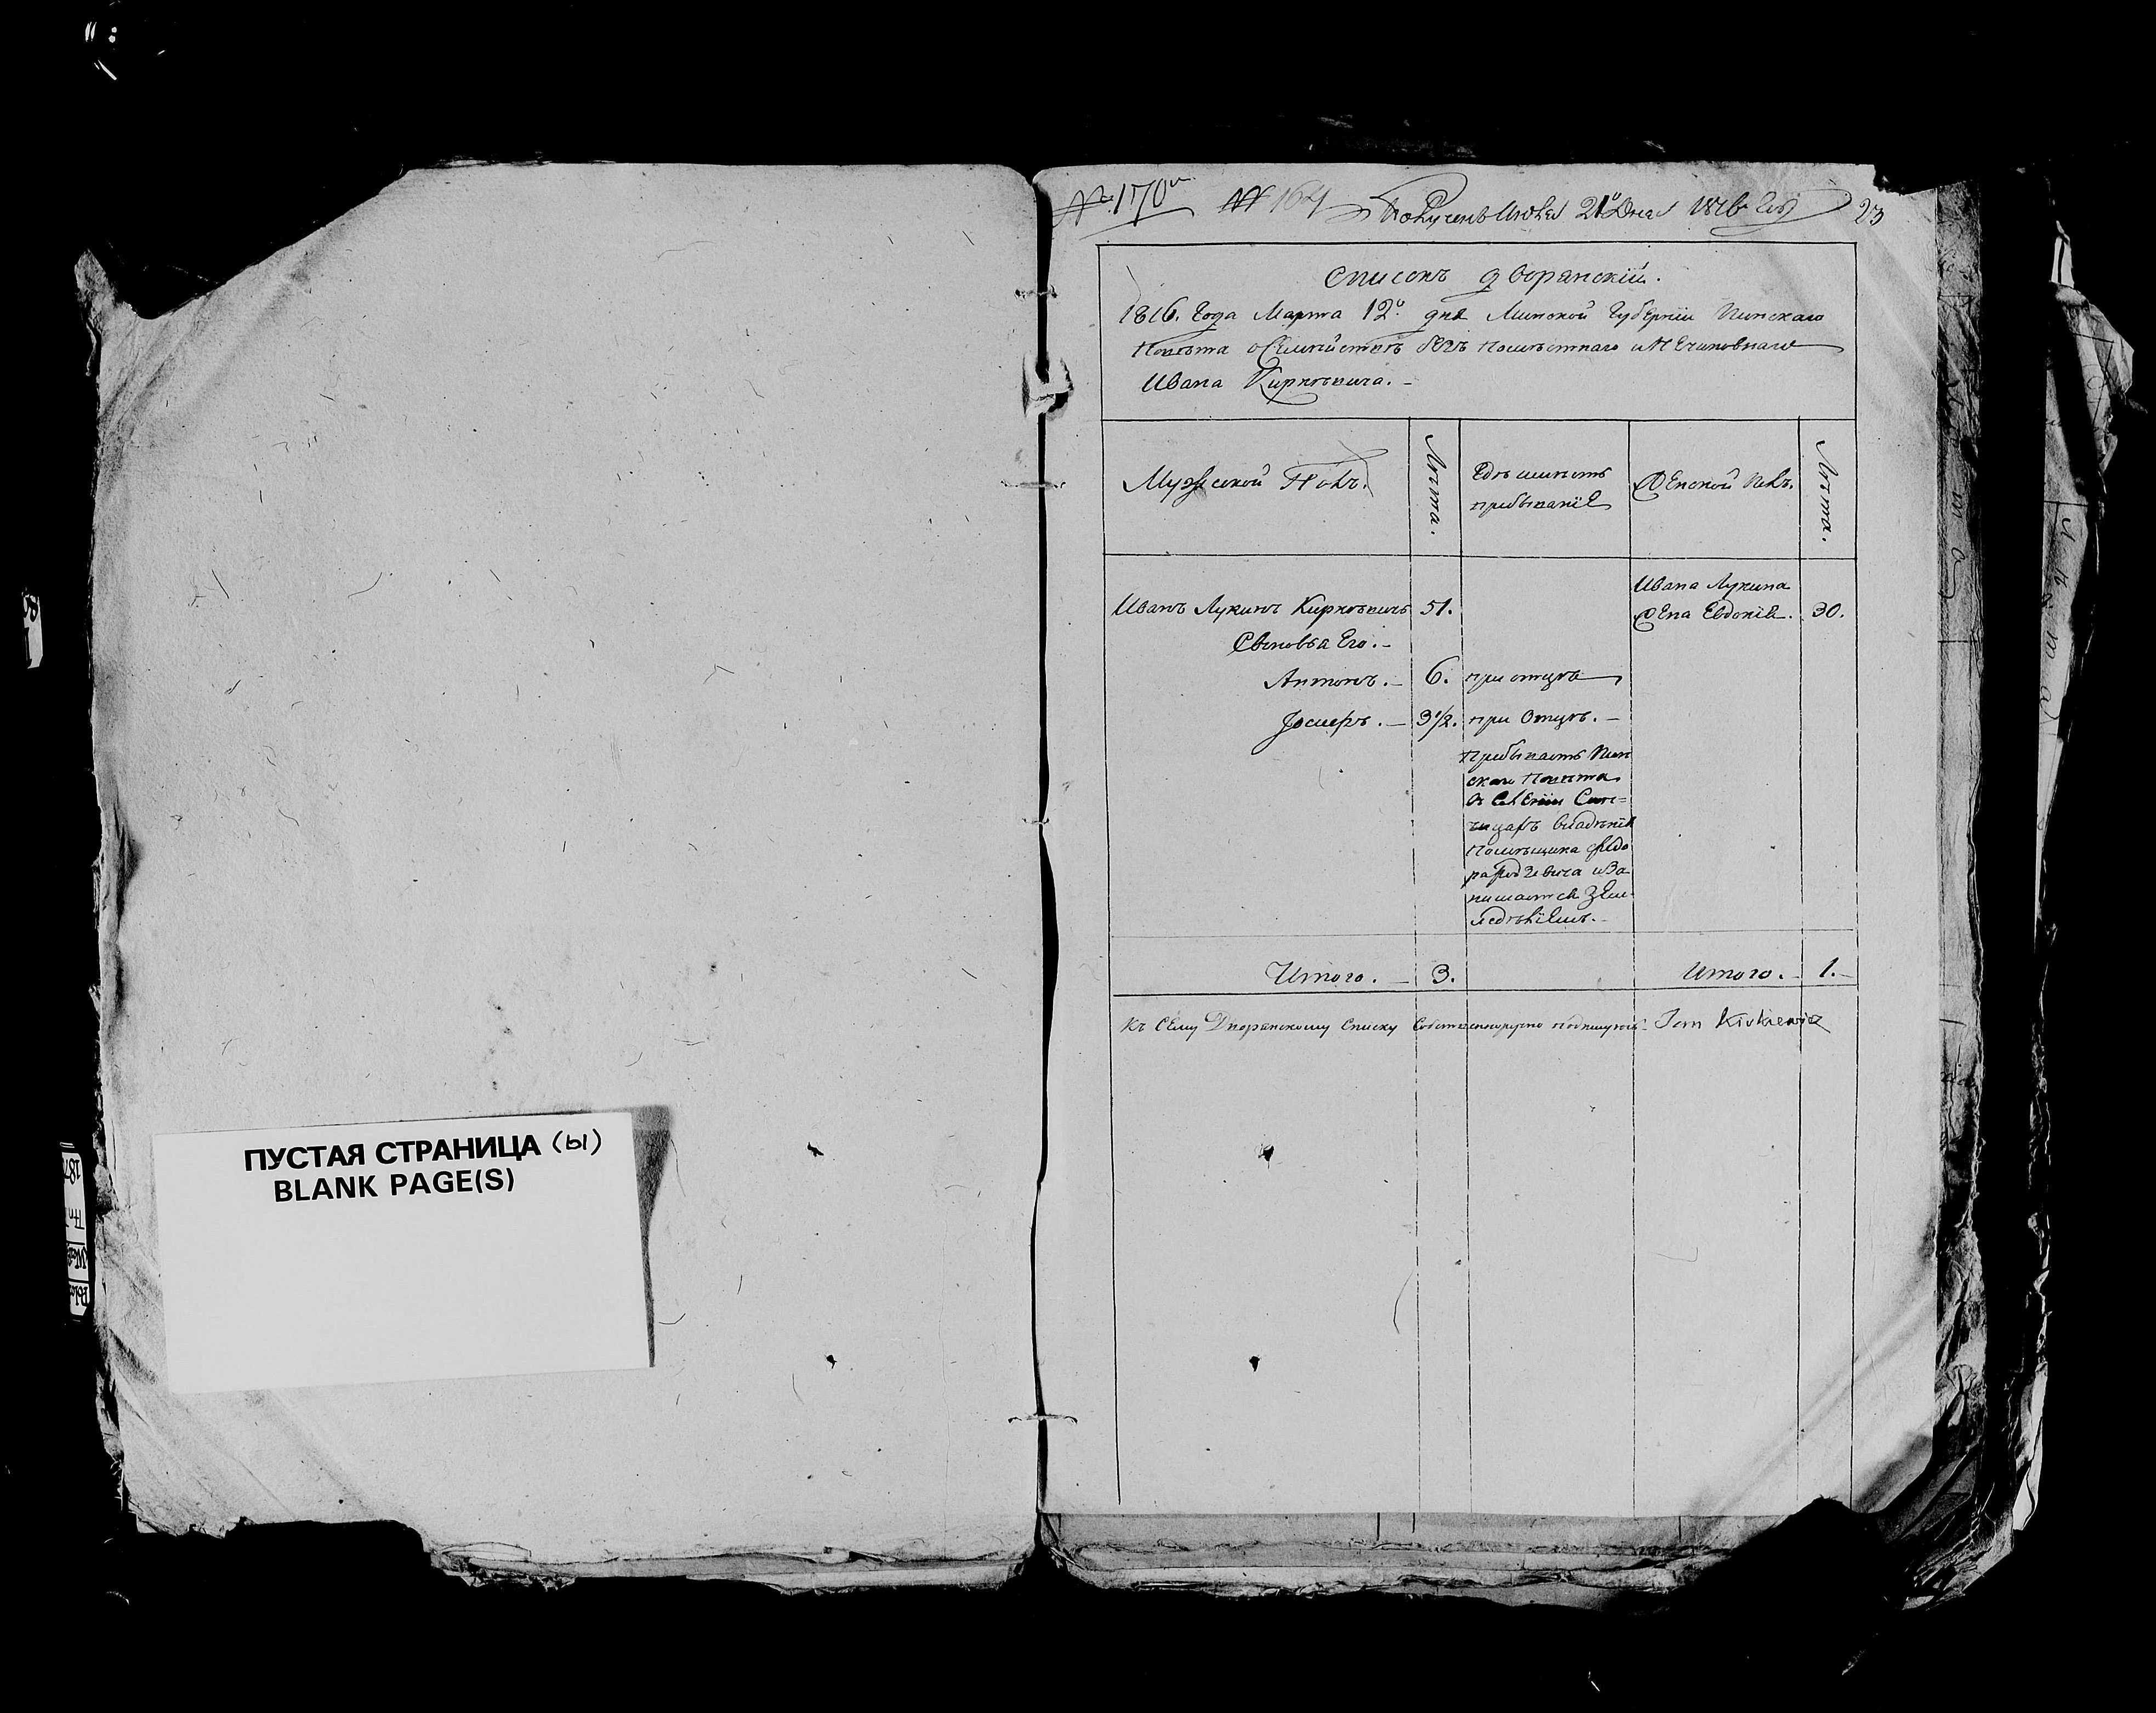 ПУСТАЯ СТРАНИЦА (ы)
BLANK PAGE(S)
№ 170
№ 164
Полученъ Июля 21го Дня 1816 Года
23
Списокъ дворянскій.
1816. Года Марта 12го дня Минской Губерніи Пинскаго
Повѣта о Семействѣ безъ помѣстнаго и Нечиновнаго
Ивана Киркѣвича. -
Мужской Полъ.
Лѣта.
Гдѣ имѣетъ
прибываніе
Женской Полъ.
Лѣта.
Иванъ Лукинъ Киркѣвичъ 51.
Ивана Лукина
Жена Евдокія. 30.
Сыновья Его. -
Антонъ. - 6. при отцѣ
Іосифъ. - 3 1/2. при Отцѣ. -
Прибываетъ Пин
скаго Повѣта
въ Селеніи
владѣнія
помѣщика
и За
нимается Зем-
ледѣліемъ. -
Итого. - 3. Итого. - 1. -
Къ Сему Дворянскому Списку Собственноручно подпишуюсь - Jan Kirkiewicz